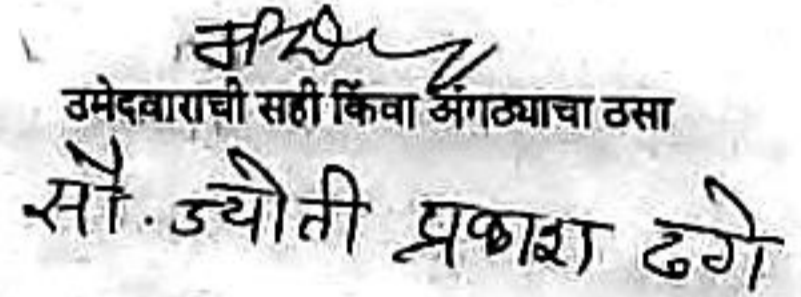 उमेदवाराची सही किंवा अंगठ्याचा ठसा
सौ. ज्योती प्रकाश ढगे